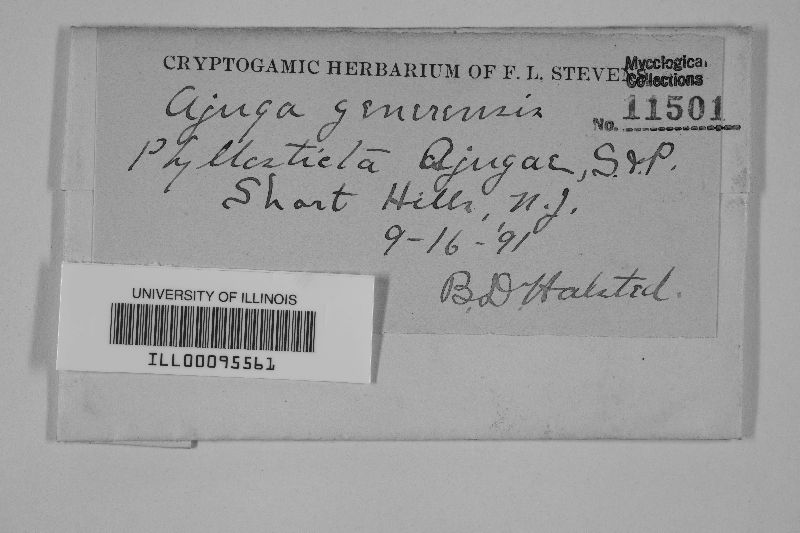 CRYPTOGAMIC HERBARIUM OF F. L. STEVENS
Mycological Collections
No. 11501
Ajuga generensis
Phyllosticta Ajugae, S.&P.
Short Hills, N.J.
9-16-'91
B.D. Halsted.
UNIVERSITY OF ILLINOIS
ILL00095561